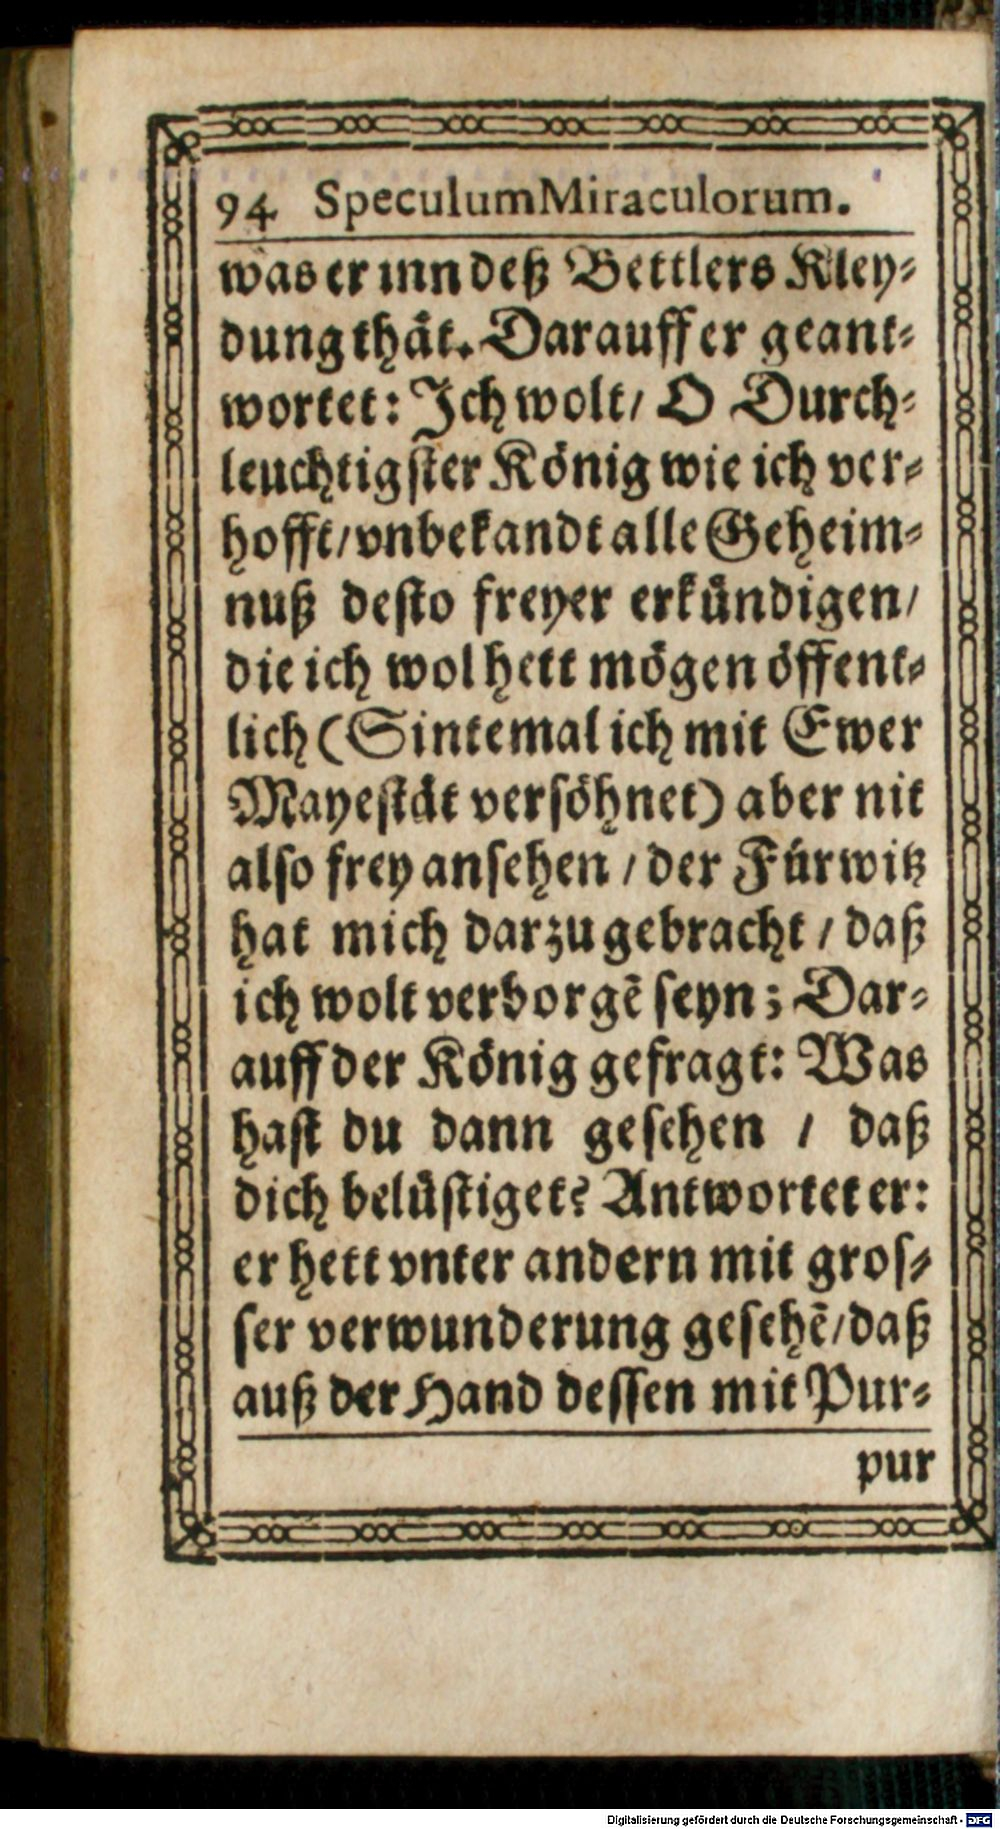 94 Speculum Miraculorum.
was er inn deß Bettlers Kley-
dung thåt. Darauff er geant-
wortet: Ich wolt/ O Durch-
leuchtigster König wie ich ver-
hofft/ vnbekandt alle Geheim-
nuß desto freyer erkündigen/
die ich wol hett mögen öffent-
lich (Sintemal ich mit Ewer
Mayestät versöhnet) aber nit
also frey ansehen / der Fürwitz
hat mich darzu gebracht / daß
ich wolt verborgē seyn; Dar-
auff der König gefragt: Was
hast du dann gesehen / daß
dich belüstiget? Antwortet er:
er hett vnter andern mit gros-
ser verwunderung gesehē/ daß
auß der Hand dessen mit Pur-
pur
Digitalisierung gefördert durch die Deutsche Forschungsgemeinschaft - DFG